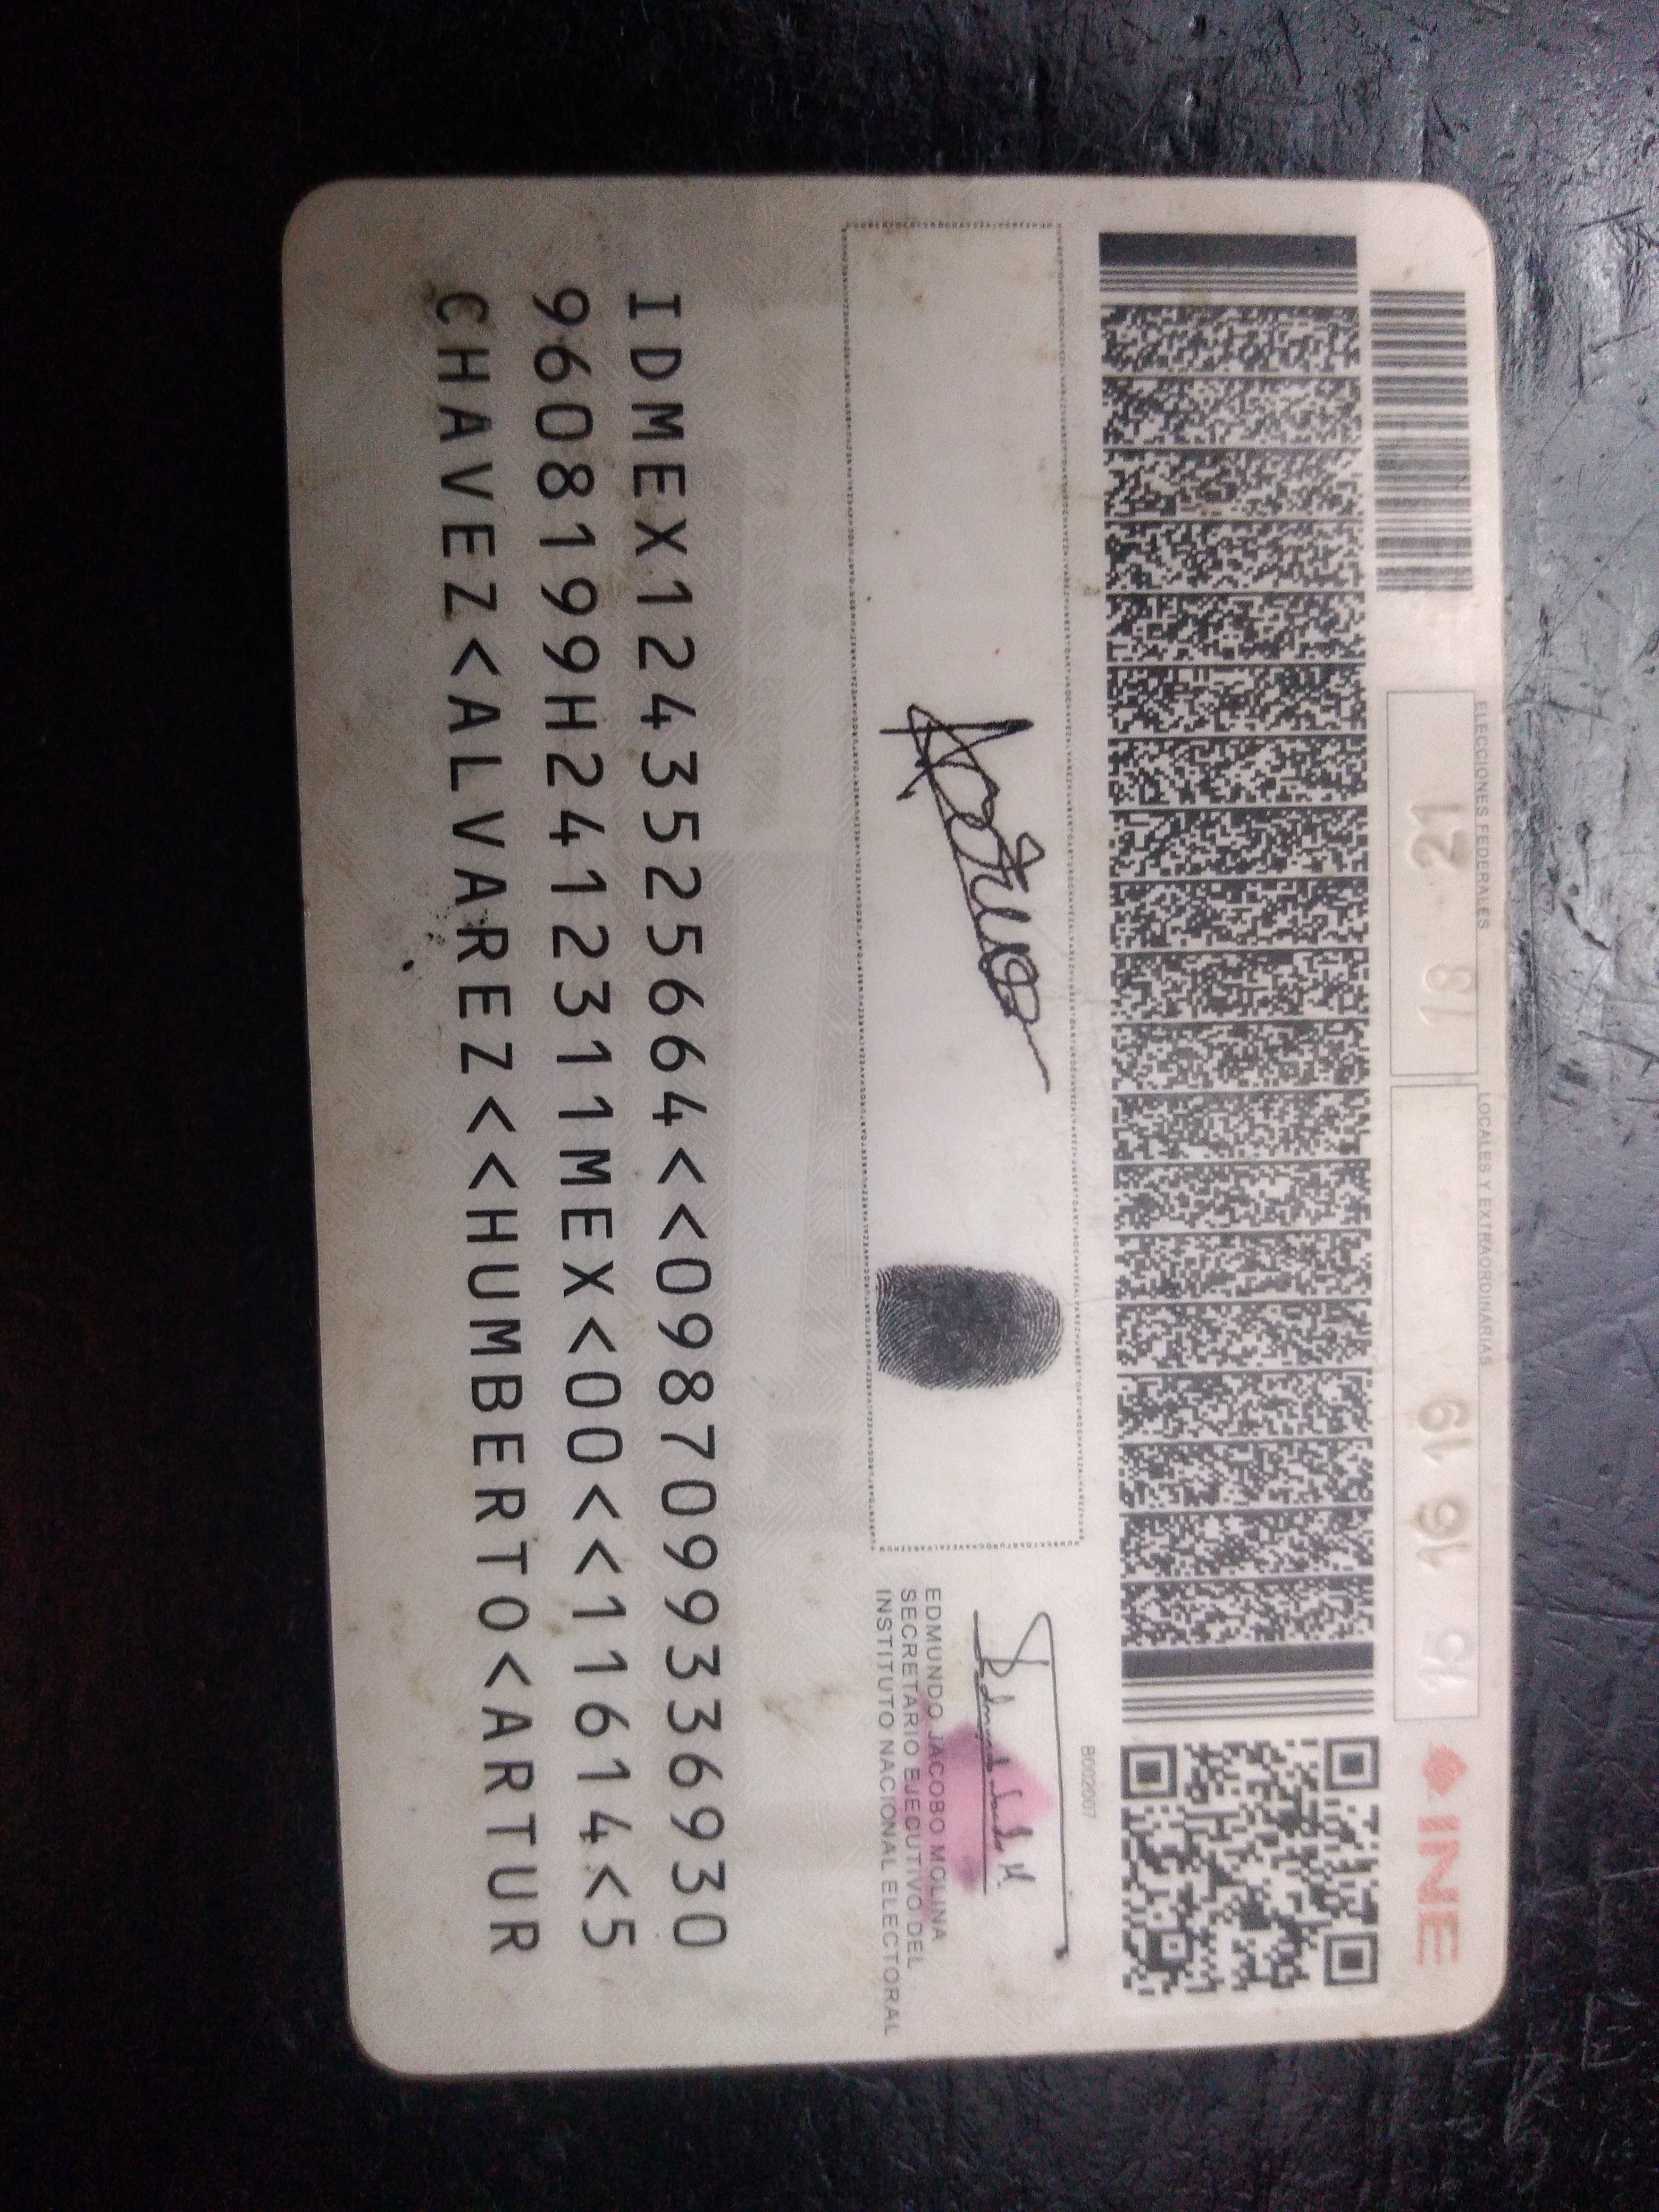 ELECCIONES FEDERALES
LOCALES Y EXTRAORDINARIAS
INE
21 18
19 16 15
B002007
EDMUNDO JACOBO MOLINA
SECRETARIO EJECUTIVO DEL
INSTITUTO NACIONAL ELECTORAL
IDMEX1243525664<<0987099336930
9608199H2412311MEX<00<<11614<5
CHAVEZ<ALVAREZ<<HUMBERTO<ARTUR